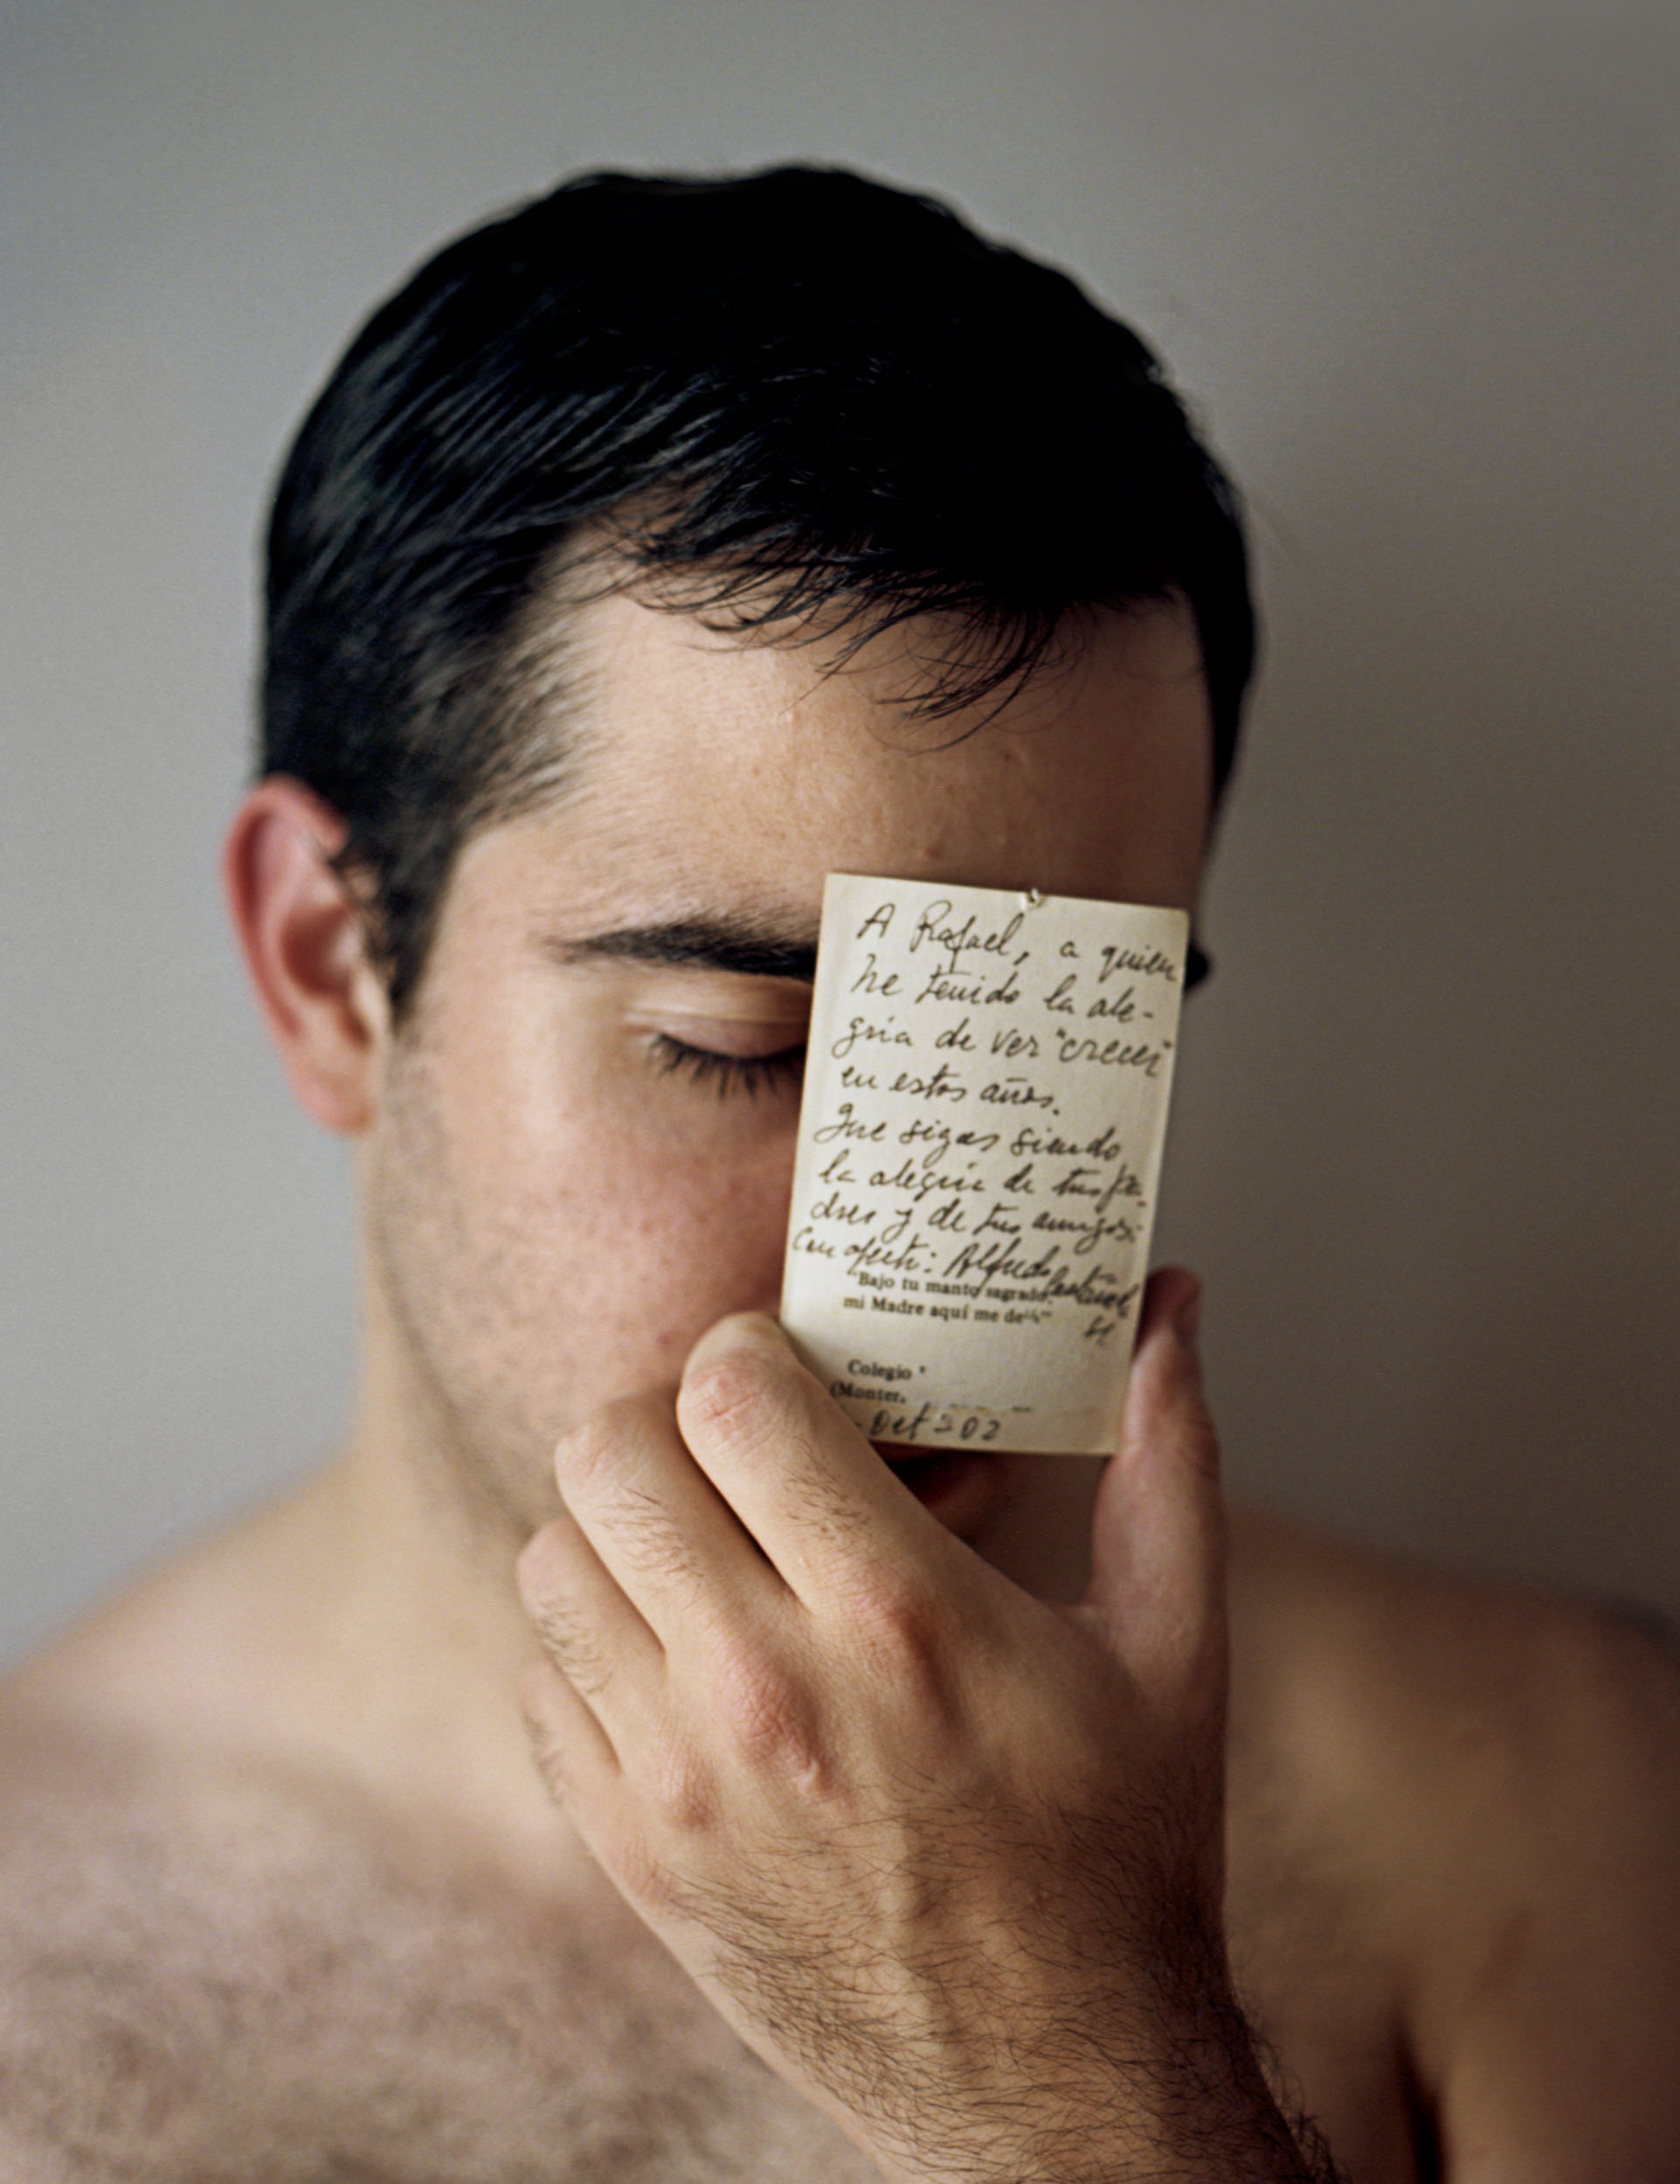 A Rafael, a quien
he tenido la ale-
gría de ver "crecer"
en estos años.
Que sigas siendo
la alegría de tus pa-
dres y de tus amigos.
Con afecto: Alfredo
"Bajo tu manto sagrado,
mi Madre aquí me
Colegio
(Monter
Oct 202